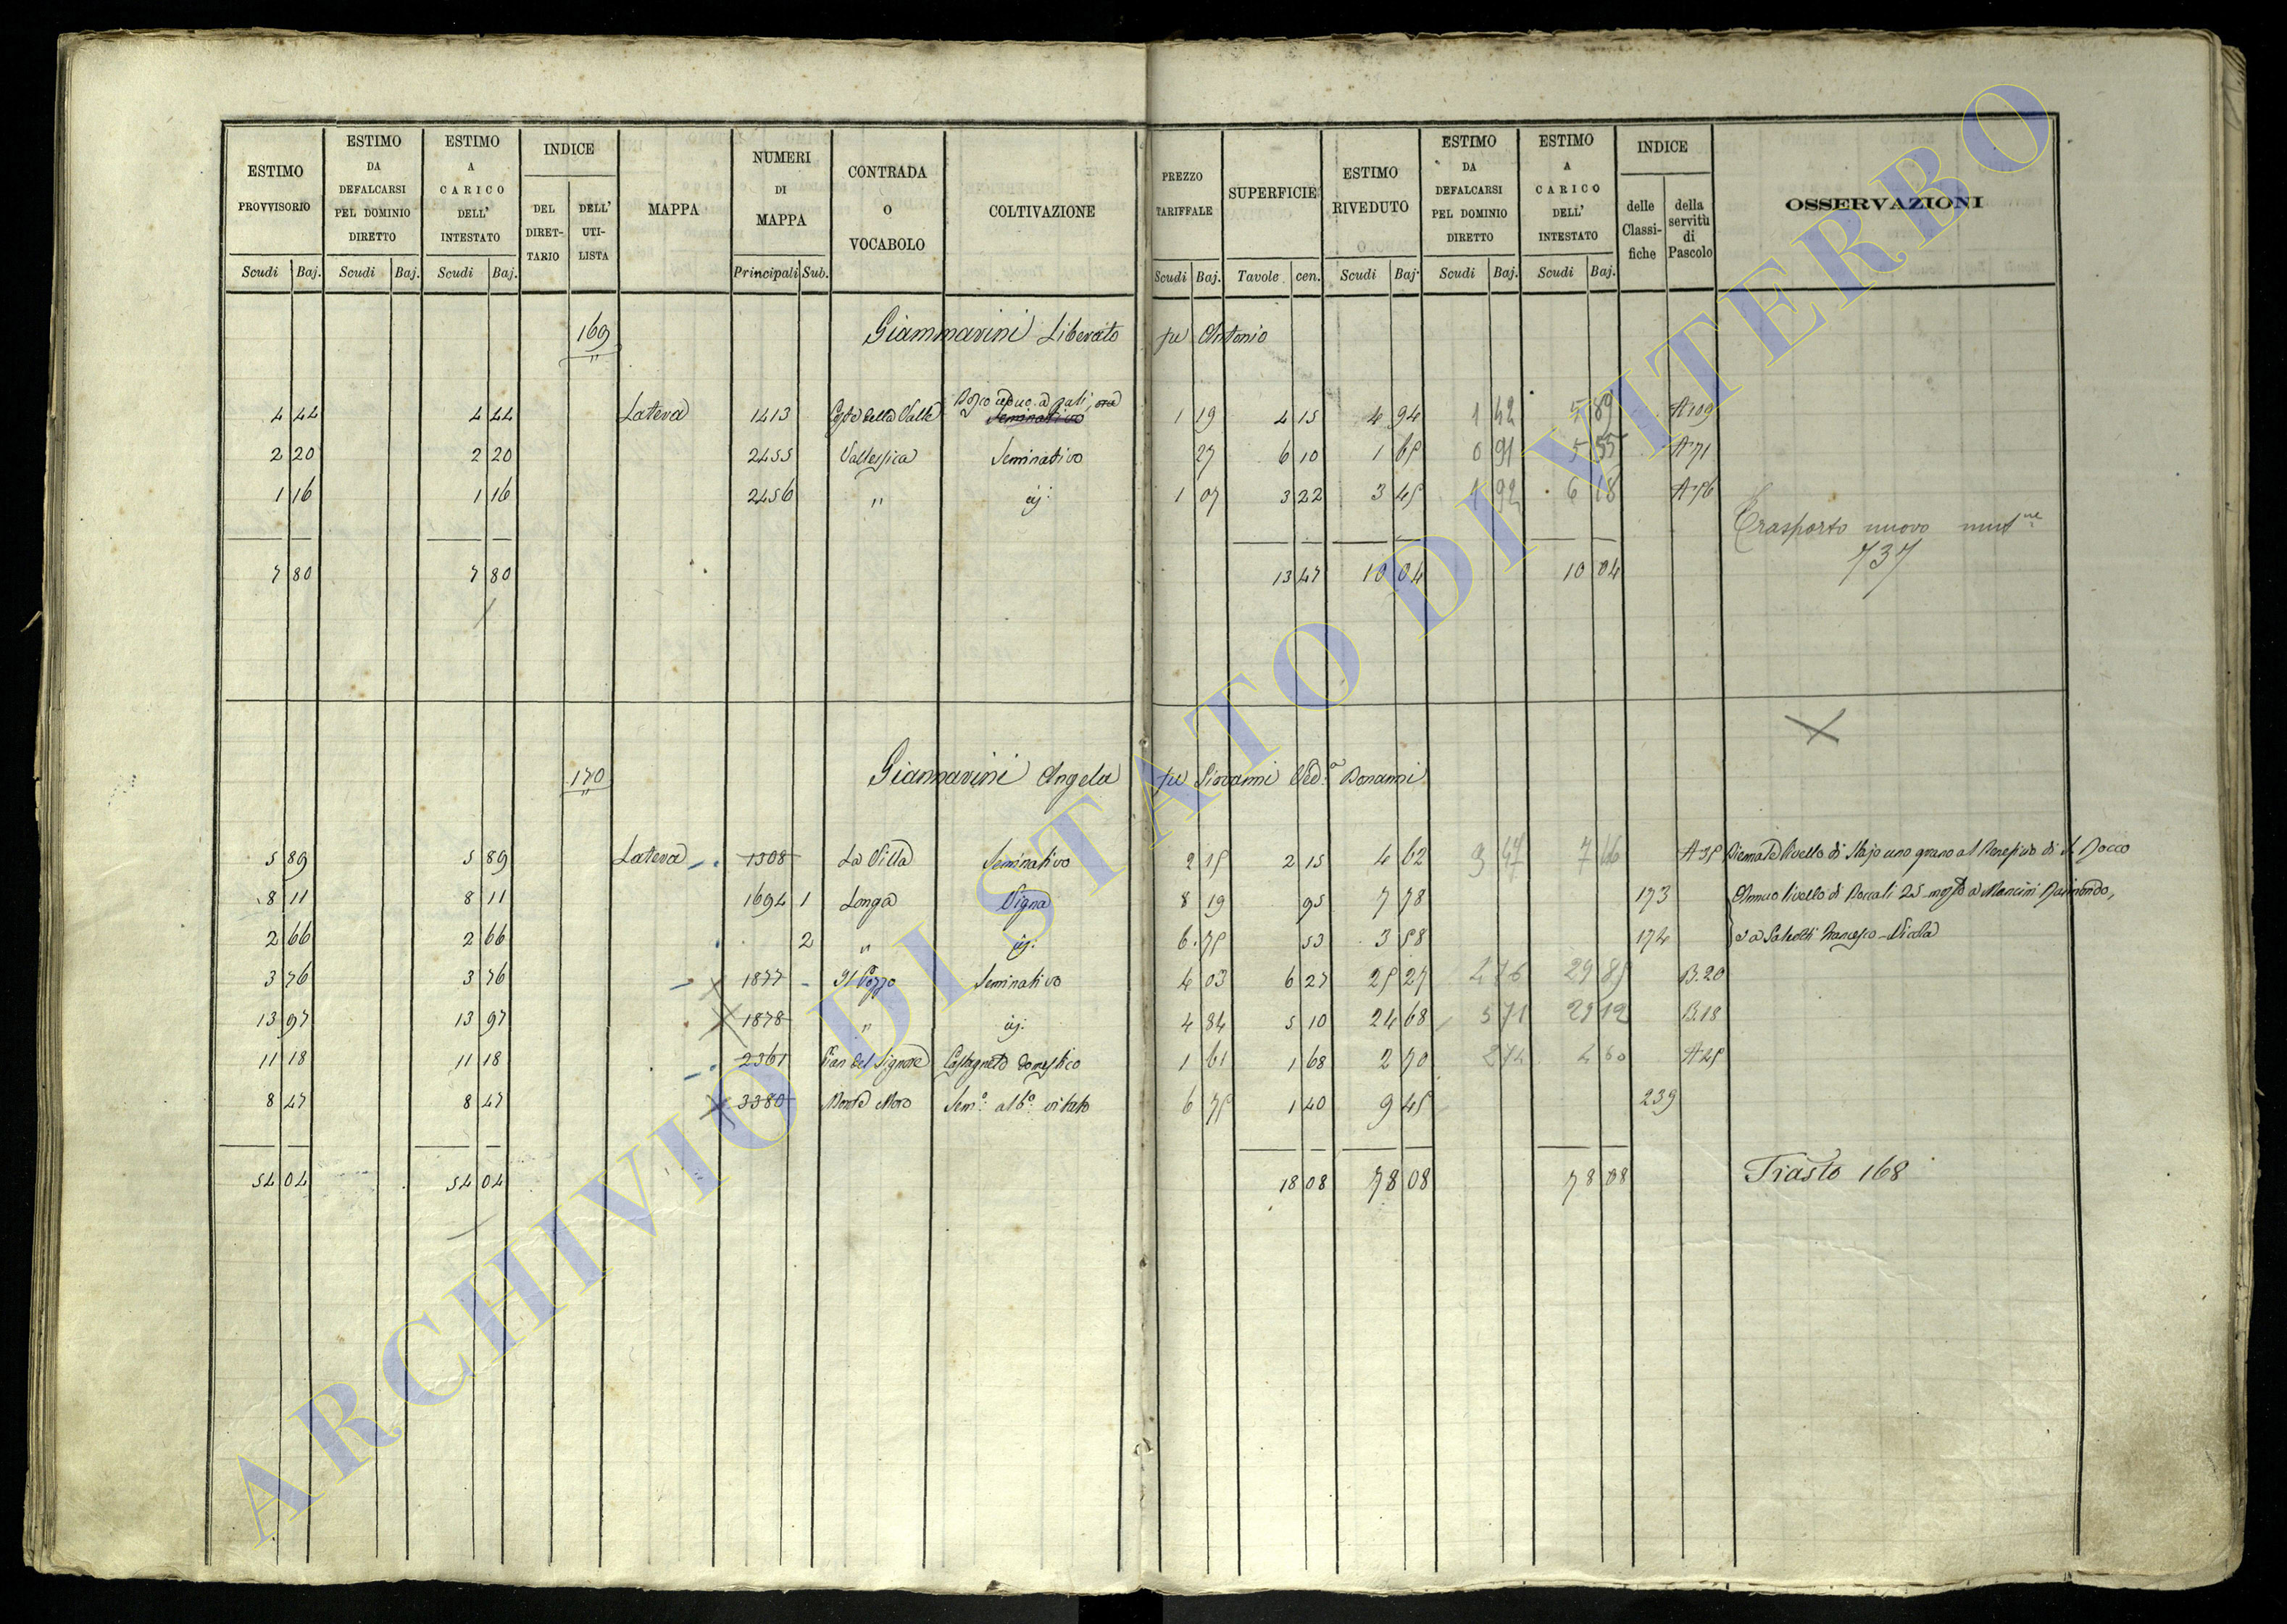 ESTIMO PROVVISORIO Scudi Baj. ESTIMO DA DEFALCARSI PEL DOMINIO DIRETTO Scudi Baj. ESTIMO A CARICO DELL' INTESTATO Scudi Baj. INDICE DEL DIRETTARIO DELL' UTILISTA MAPPA NUMERI DI MAPPA Principali Sub. CONTRADA O VOCABOLO COLTIVAZIONE PREZZO TARIFFALE Scudi Baj. SUPERFICIE Tavole cen. ESTIMO RIVEDUTO Scudi Baj ESTIMO DA DEFALCARSI PEL DOMINIO DIRETTO Scudi Baj. ESTIMO A CARICO DELL' INTESTATO Scudi Baj. INDICE delle Classifiche della servitù di Pascolo OSSERVAZIONI
169 Giammarini Liberato fu Antonio
4 44 4 44 Latera 1413 della Valle Seminativo 1 19 4 15 4 94 1 42 5 89 A 109
2 20 2 20 2455 Seminativo 27 6 10 1 65 0 91 5 55 A 71
1 16 1 16 2456 " 1 07 3 22 3 45 1 92 6 18 A 56
Trasporto nuovo
737
7 80 7 80 13 47 10 04 10 04
170 Giannarini Angela fu Giovanni Ved.a Bonanni
5 89 5 89 Latera 1308 La Villa Seminativo 2 15 2 15 4 62 9 47 7 46 A 35 livello di Stajo uno grano al Beneficio di S. Rocco
8 11 8 11 1694 1 Longa Vigna 8 19 95 7 78 173 Annuo livello di Boccali 25 mosto a Mancini Raimondo,
2 66 2 66 2 " 6 75 53 3 58 174 e a Francesco Nicola
3 76 3 76 1877 Il Pozzo Seminativo 4 03 6 27 25 27 4 76 29 85 B.20
13 97 13 97 1878 " 4 84 5 10 24 68 5 71 29 12 B.18
11 18 11 18 2361 Pian del Signore Castagneto domestico 1 61 1 68 2 70 2 74 4 60 A 25
8 47 8 47 3380 Monte Moro Sem.o alb.o vitato 6 75 1 40 9 45 239
54 04 54 04 18 08 78 08 78 08 Trasto 168
ARCHIVIO DI STATO DI VITERBO